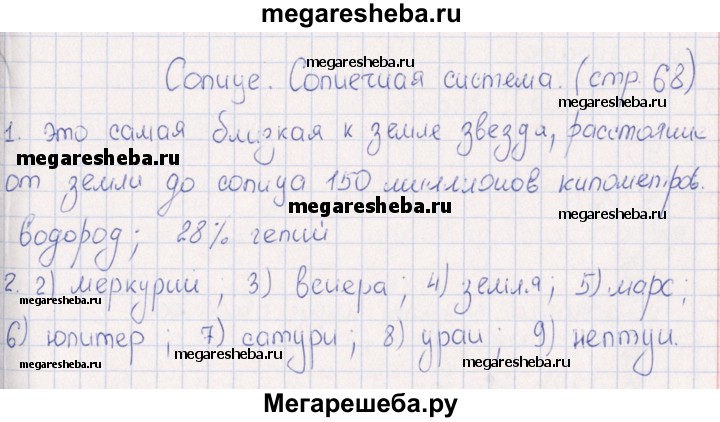 megaresheba.ru
megaresheba.ru
Солнце. Солнечная система. (стр. 68)
megaresheba.ru
megaresheba.ru
1. Это самая близкая к земле звезда, расстояни
megaresheba.ru
megaresheba.ru
от земли до солнца 150 миллионов километров.
megaresheba.ru
megaresheba.ru
водород; 28% гелий
2. 2) меркурий; 3) венера; 4) земля; 5) марс;
megaresheba.ru
megaresheba.ru
megaresheba.ru
6) юпитер; 7) сатурн; 8) уран; 9) нептун.
megaresheba.ru
megaresheba.ru
Мегарешеба.ру